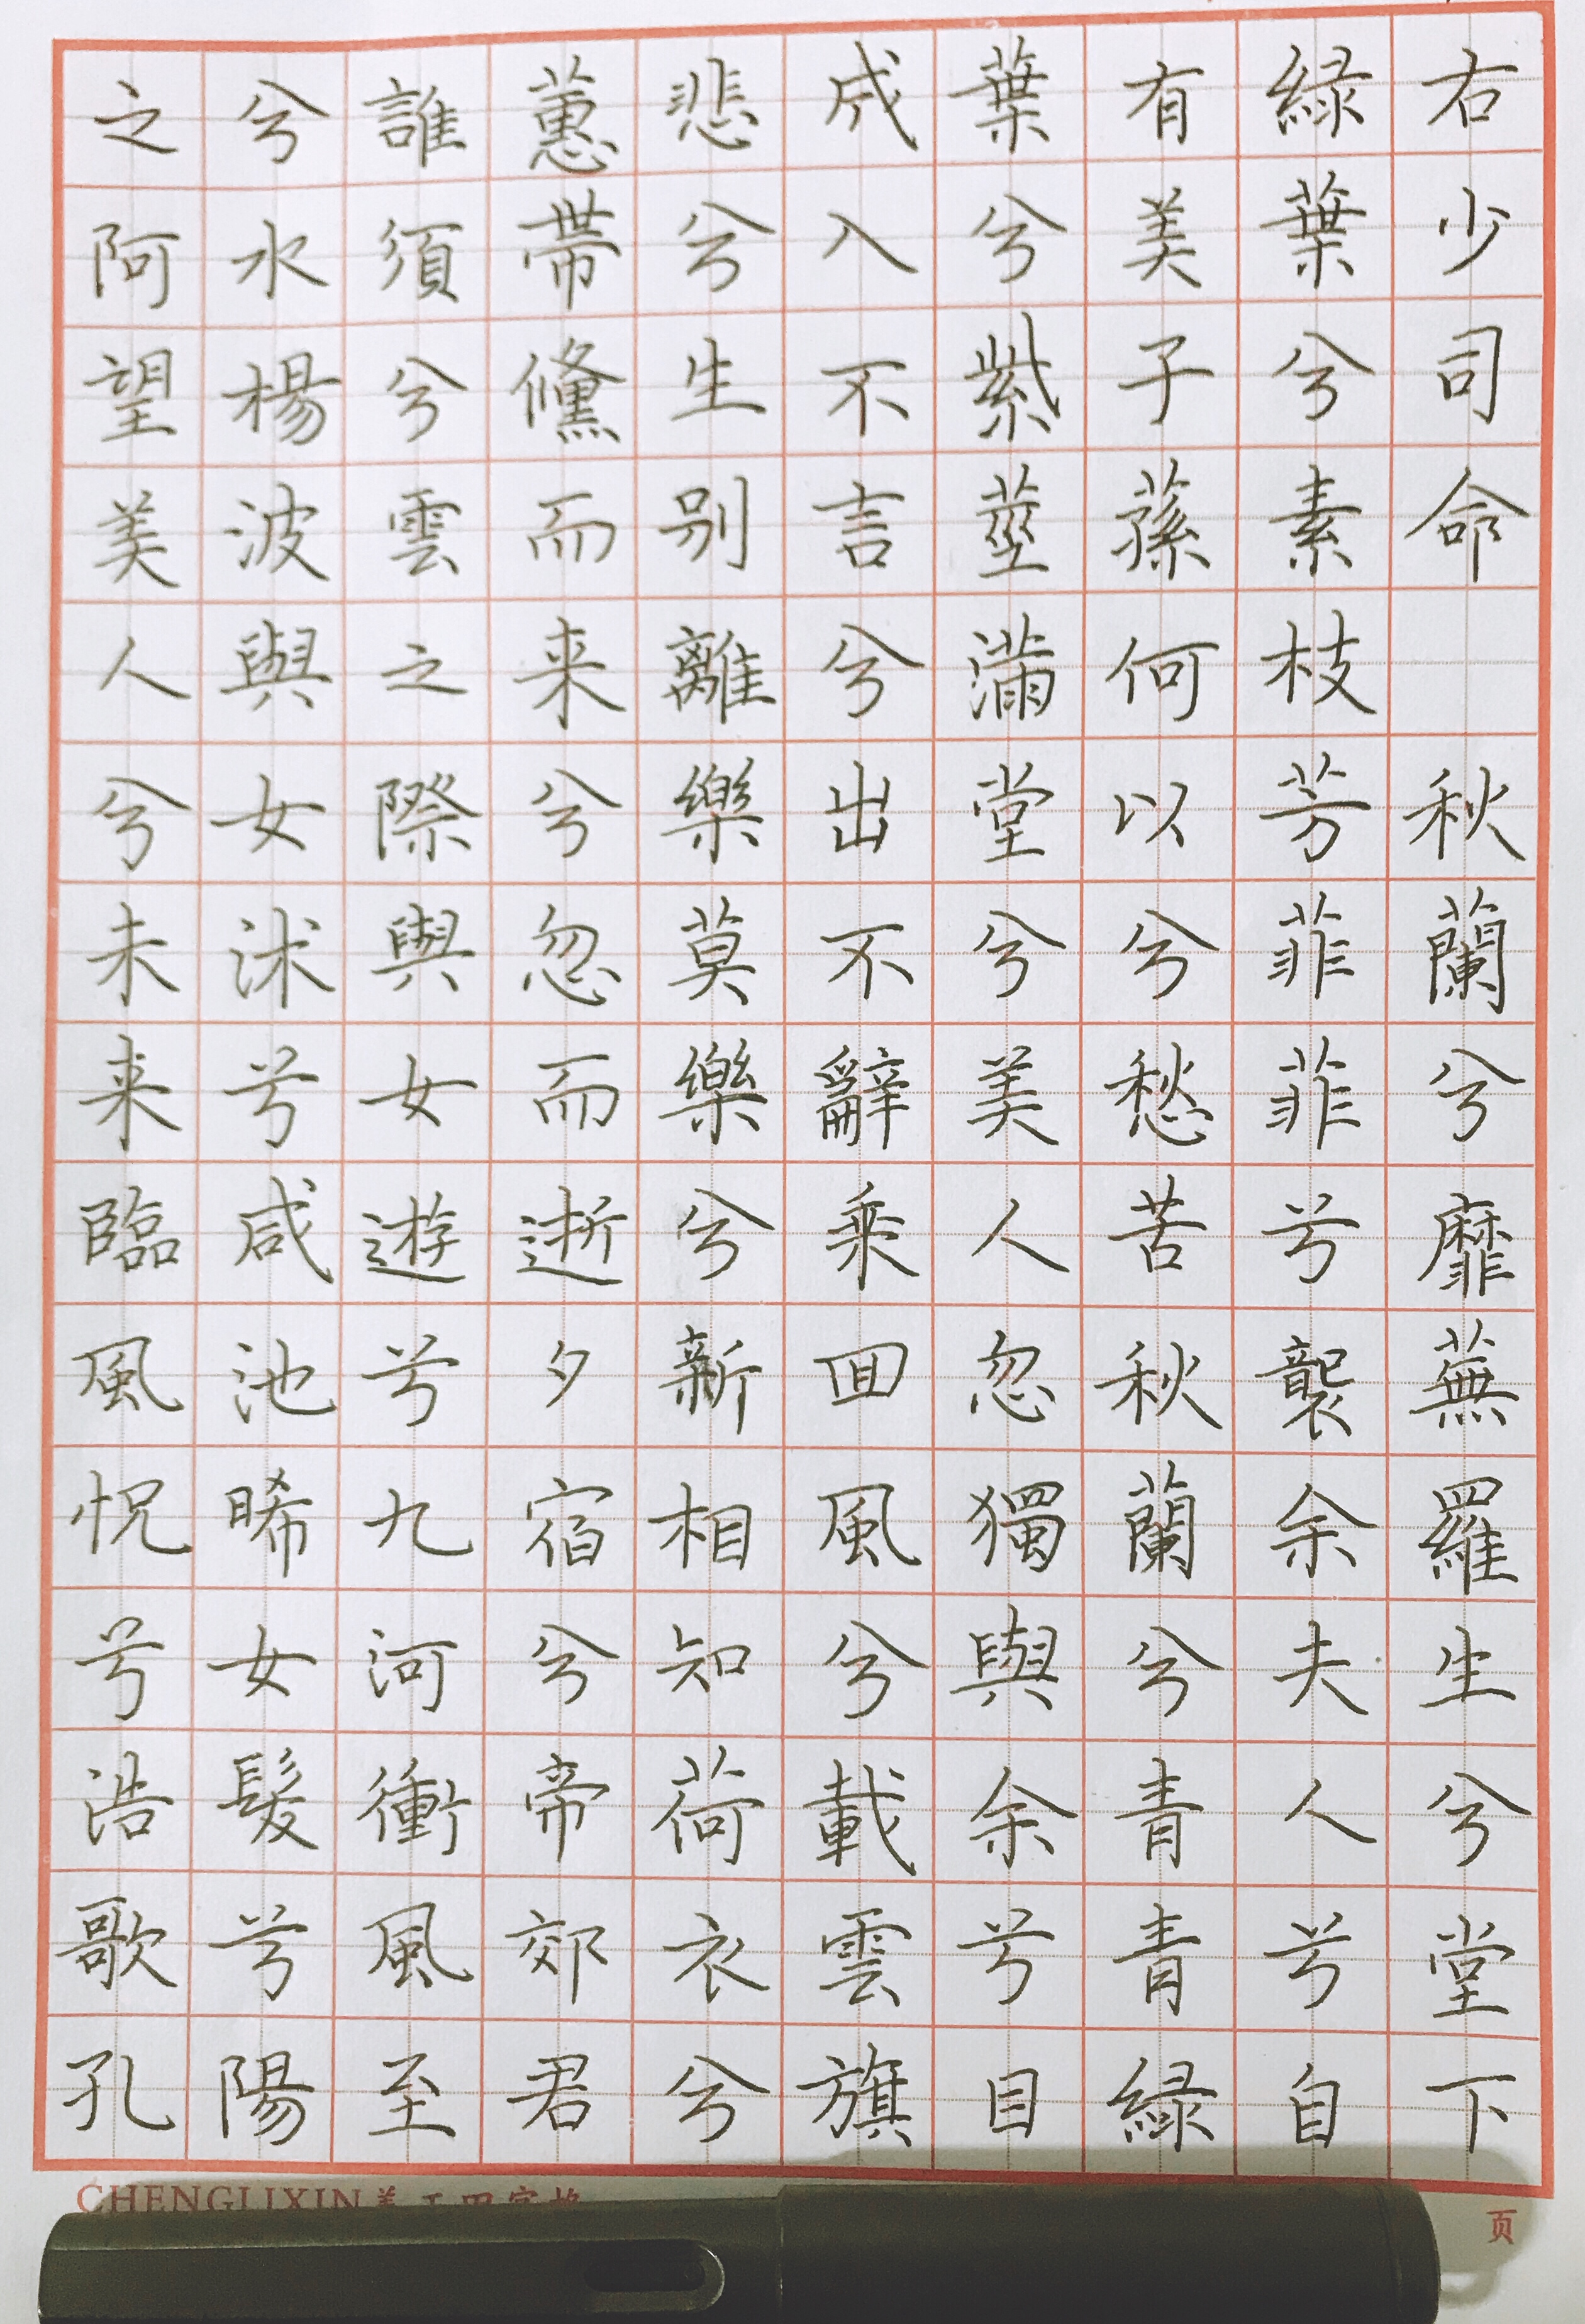 右少司命　秋蘭兮靡蕪羅生兮堂下
緑葉兮素枝芳菲菲兮襲余夫人兮自
有美子蓀何以兮愁苦秋蘭兮青青緑
葉兮紫莖滿堂兮美人忽獨與余兮目
成入不言兮出不辭乘回風兮載雲旗
悲兮生别離樂莫樂兮新相知荷衣兮
蕙帶儵而来兮忽而逝夕宿兮帝郊君
誰須兮雲之際與女遊兮九河衝風至
兮水楊波與女沐兮咸池晞女髮兮陽
之阿望美人兮未来臨風怳兮浩歌孔
CHENGLIXIN
页